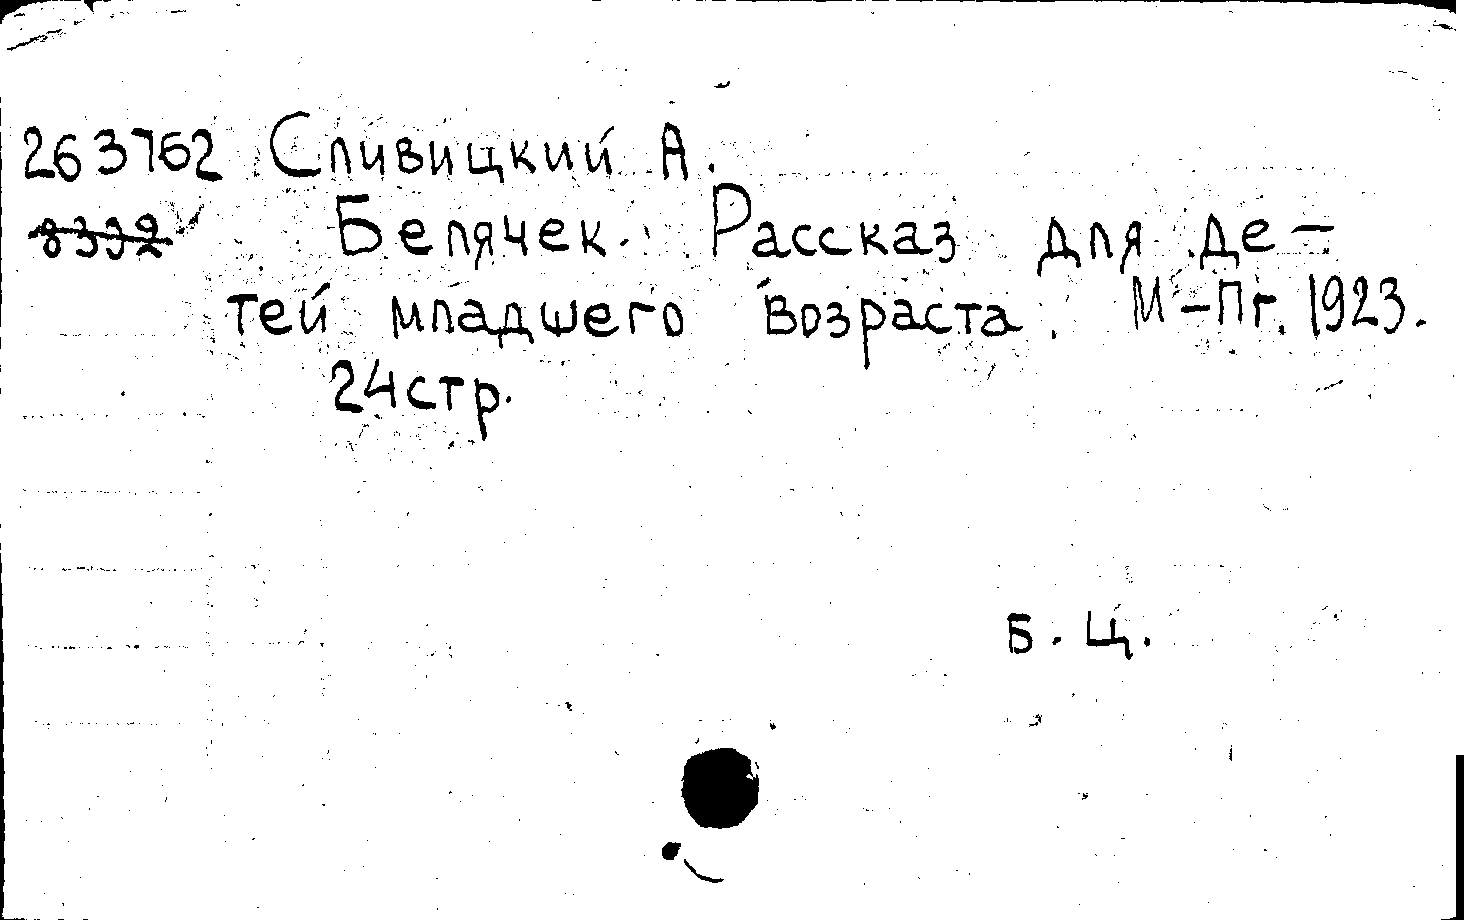 263762 Сливицкий А.
8332 Белячек. Рассказ для де-
тей младшего возраста. М-Пг. 1923.
24 стр.
Б. Ц.